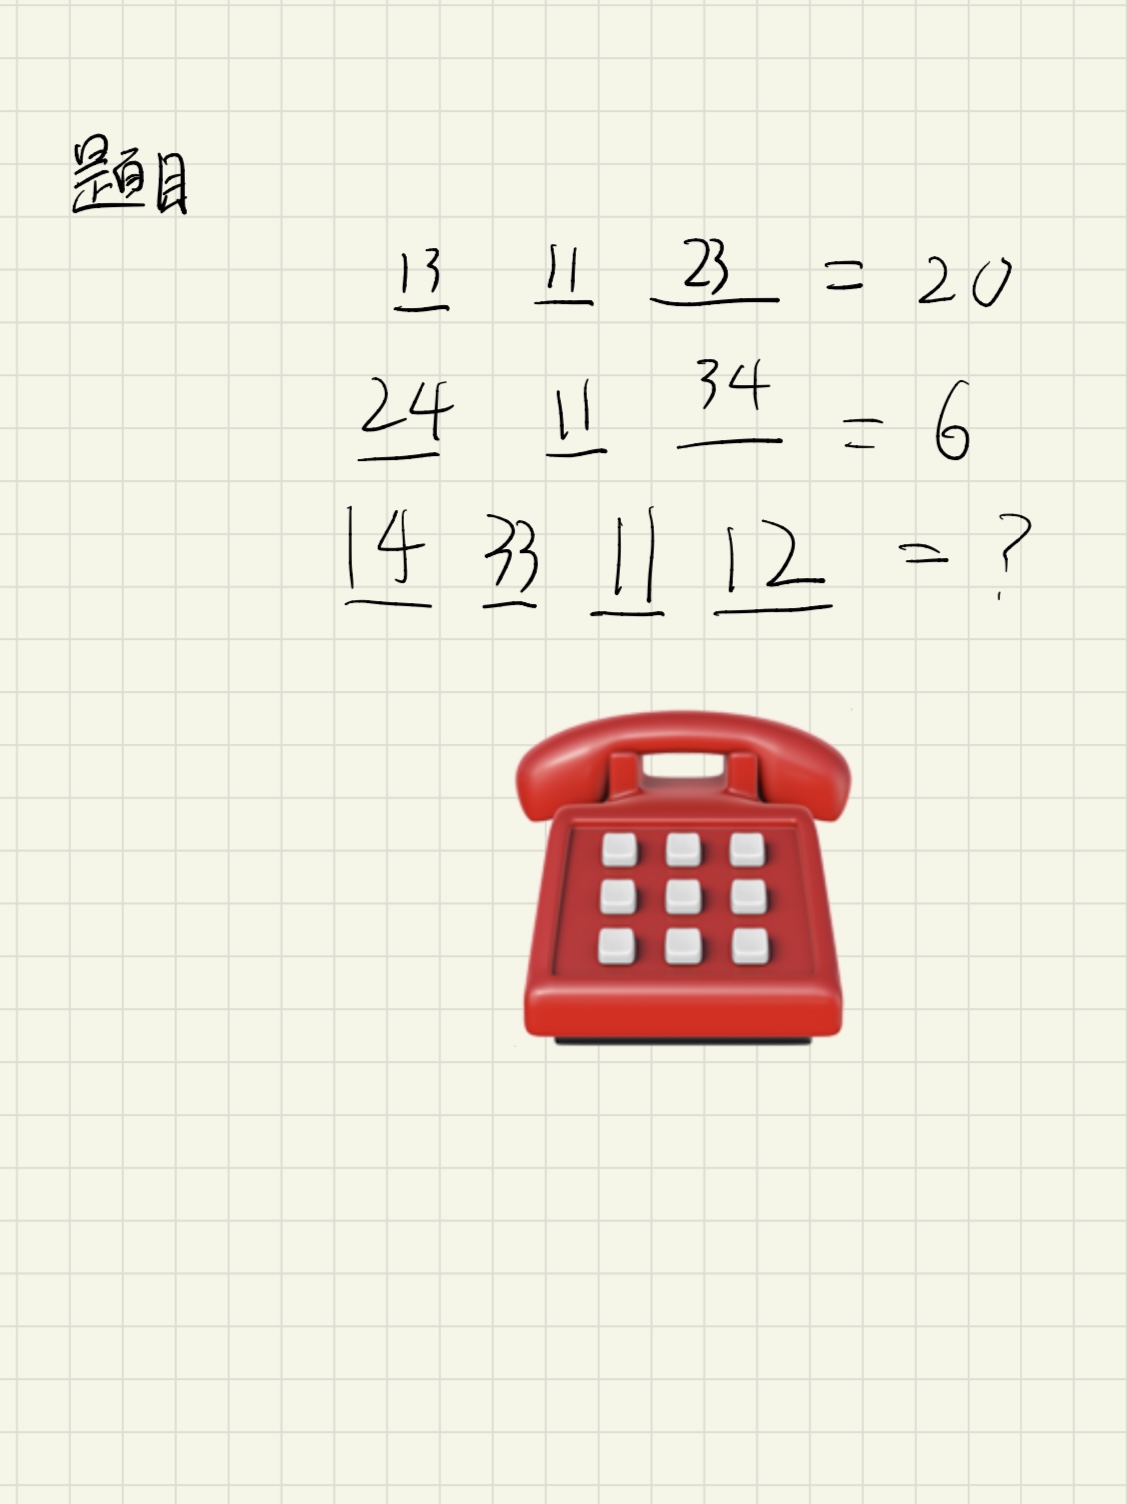 题目
13 11 23 = 20
24 11 34 = 6
14 33 11 12 = ?